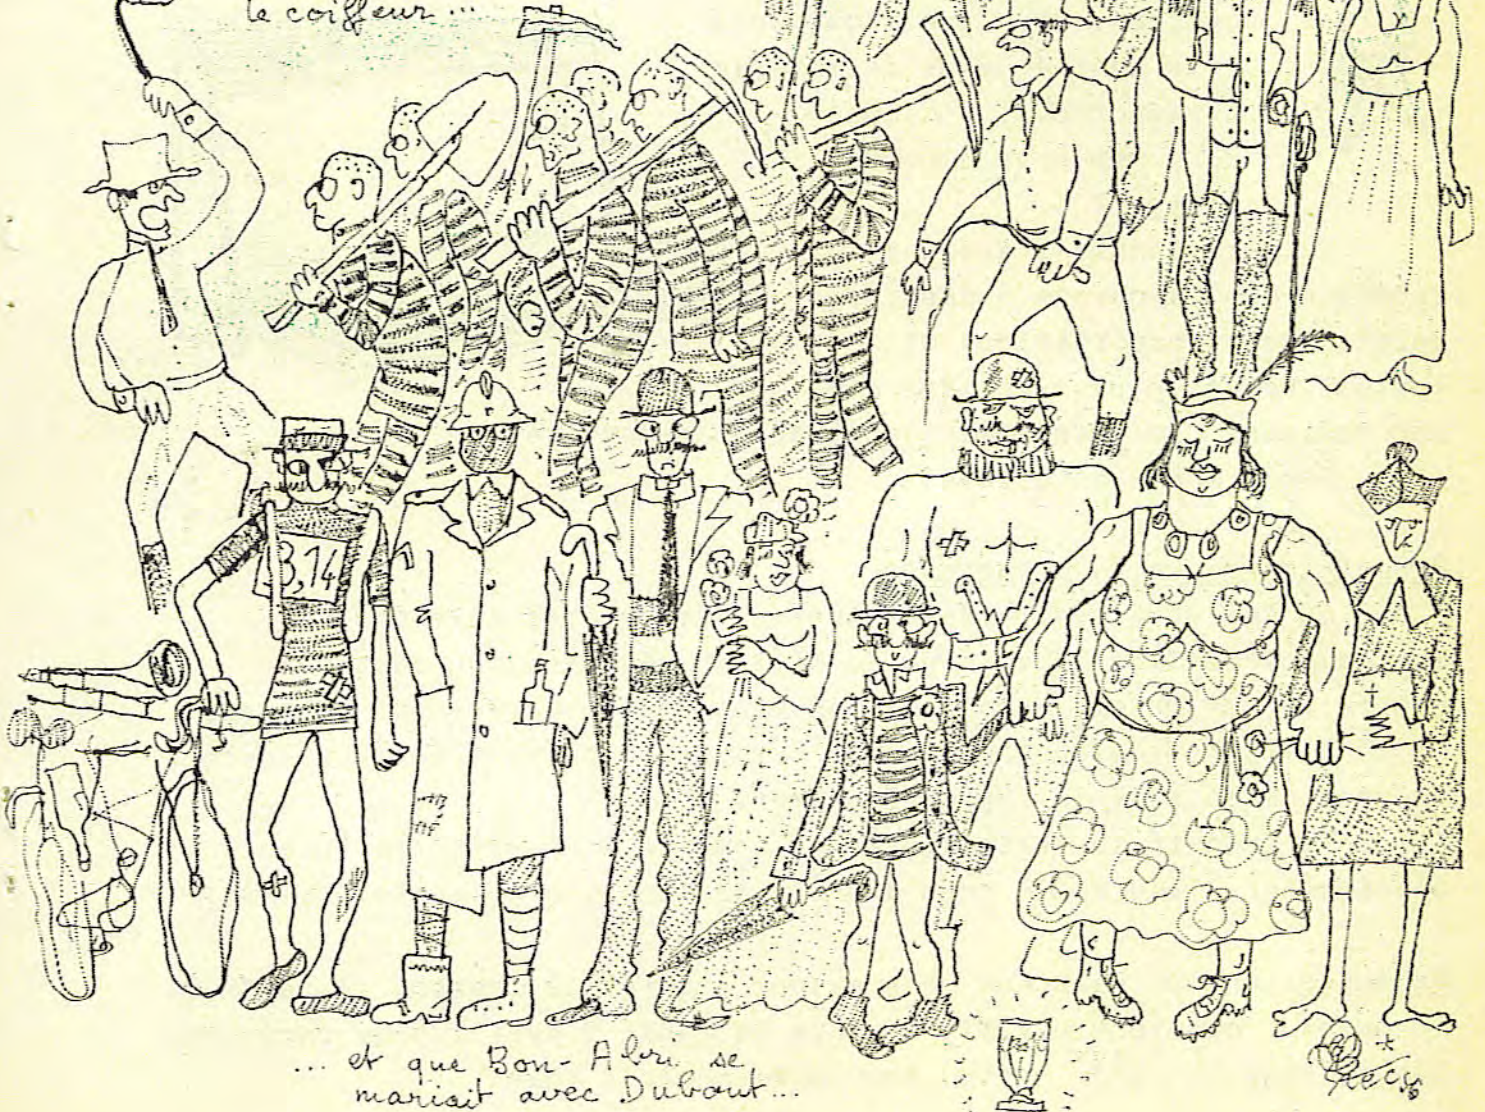 le coiffeur...
3,14
... et que Bon-Abri se
mariait avec Dubout...